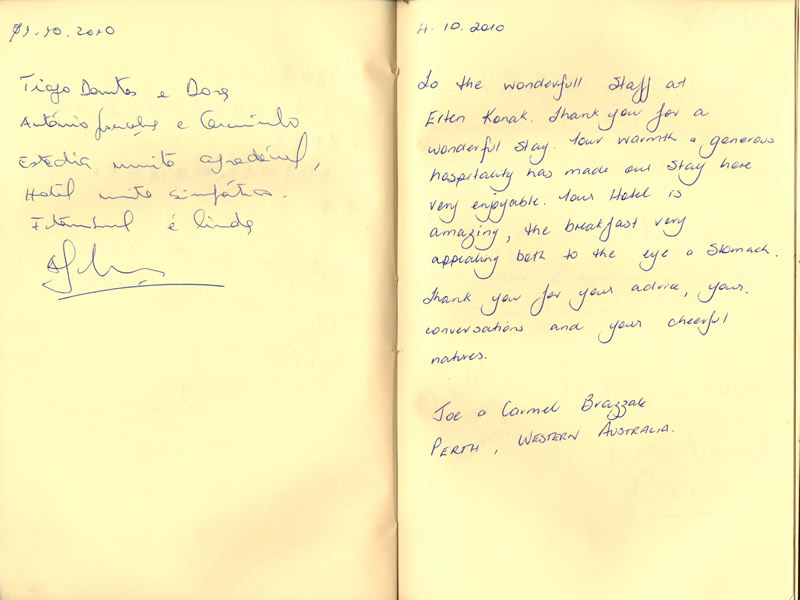 .10.2010
Tiago Dantas e Dora
António e
Estadia muito agradável,
Hotel muito simpático.
Istambul é linda
4.10.2010
To the wonderfull Staff at
Erten Konak. Thank you for a
wonderful stay. Your warmth & generous
hospitality has made our stay here
very enjoyable. Your Hotel is
amazing, the breakfast very
appealing both to the eye & stomach.
Thank you for your advice, your
conversations and your cheerful
natures.
Joe & Carmel Brazzale
PERTH, WESTERN AUSTRALIA.